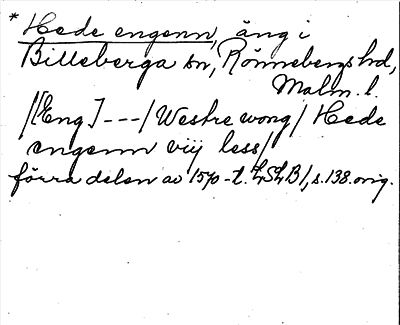 * Hede engenn, äng i
Billeberga sn, Rönnebergs hd,
Malm. l.
/[Eng] --- / Westre wong / Hede
engenn viij less /
förra delen av 1570-t. LSLB /, s. 138. orig.